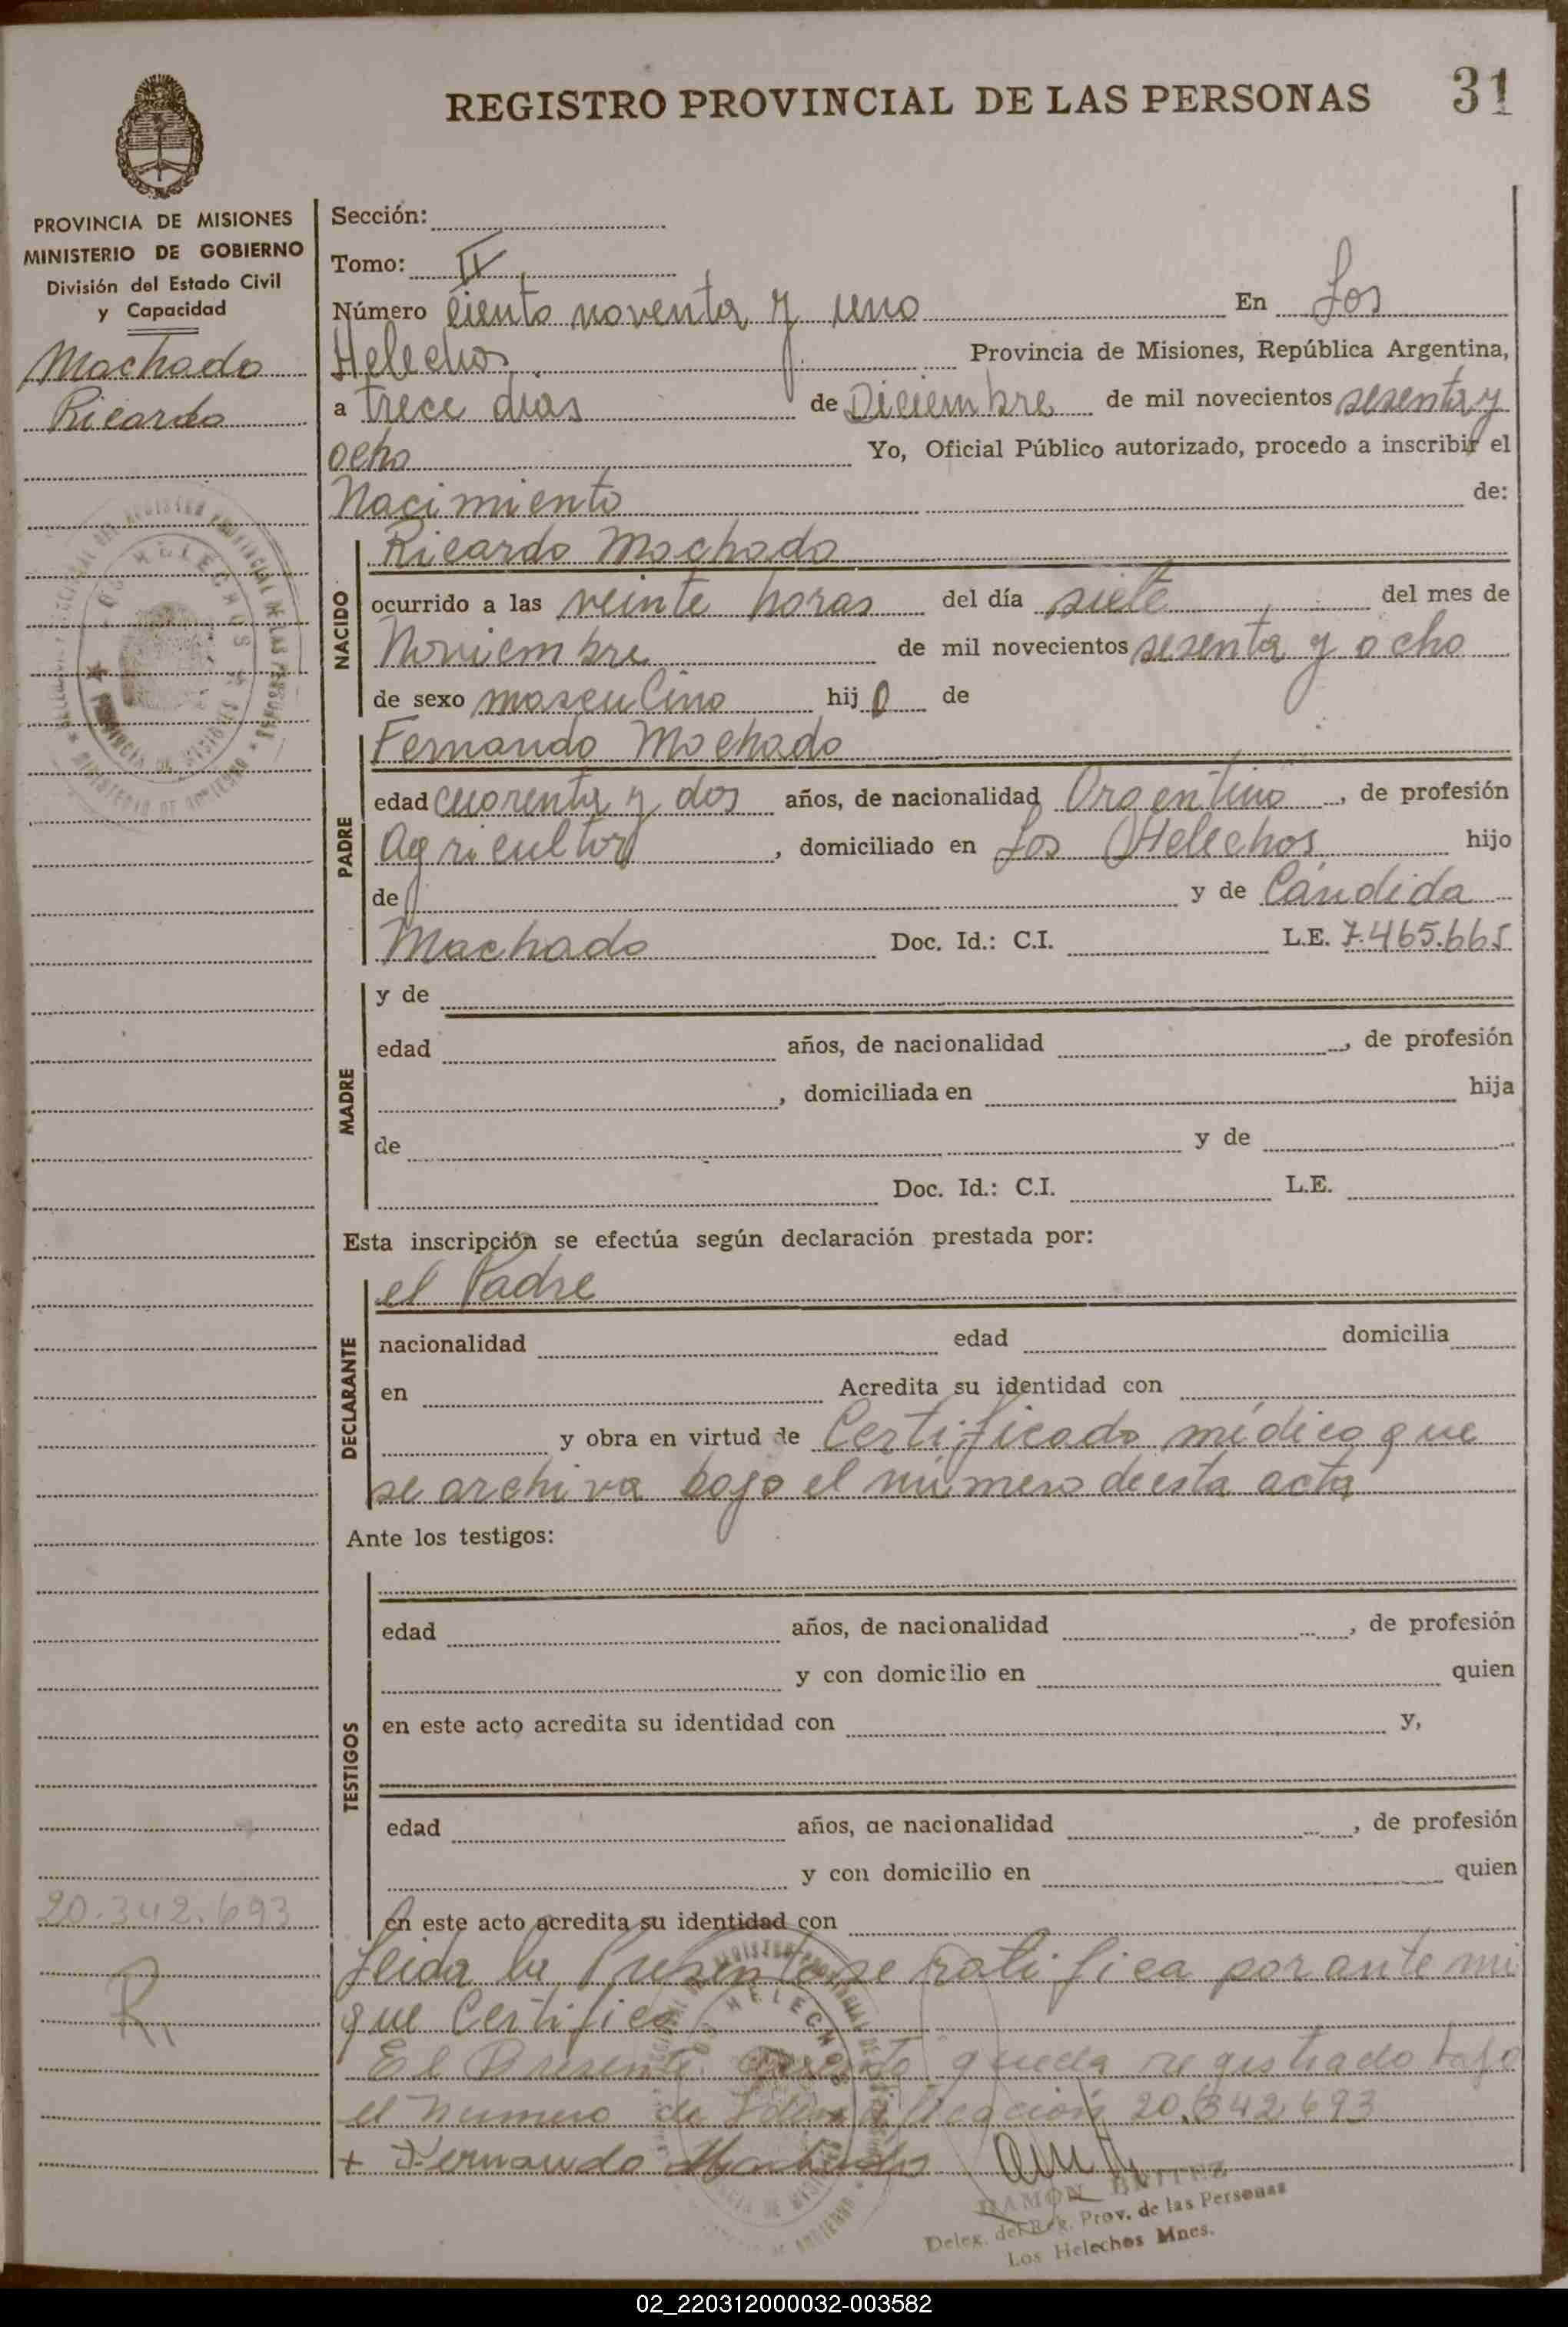 REGISTRO PROVINCIAL DE LAS PERSONAS 31
PROVINCIA DE MISIONES
MINISTERIO DE GOBIERNO
División del Estado Civil
y Capacidad
Machado
Ricardo
Sección:
Tomo: II
Número ciento noventa y uno En Los
Helechos Provincia de Misiones, República Argentina,
a trece dias de Diciembre de mil novecientos sesenta y
ocho Yo, Oficial Público autorizado, procedo a inscribir el
Nacimiento de:
NACIDO
Ricardo Machado
ocurrido a las veinte horas del día siete del mes de
Noviembre de mil novecientos sesenta y ocho
de sexo masculino hijo de
PADRE
Fernando Machado
edad cuarenta y dos años, de nacionalidad Argentino, de profesión
Agricultor, domiciliado en Los Helechos hijo
de y de Cándida
Machado Doc. Id.: C.I. L.E. 7.465.665
MADRE
y de
edad años, de nacionalidad , de profesión
, domiciliada en hija
de y de
Doc. Id.: C.I. L.E.
Esta inscripción se efectúa según declaración prestada por:
DECLARANTE
el Padre
nacionalidad edad domicilia
en Acredita su identidad con
y obra en virtud de Certificado médico que
se archiva bajo el número de esta acta
Ante los testigos:
TESTIGOS
edad años, de nacionalidad , de profesión
y con domicilio en quien
en este acto acredita su identidad con y,
edad años, de nacionalidad , de profesión
y con domicilio en quien
en este acto acredita su identidad con
20.342.693
Leida la Presente se ratifica por ante mi
que Certifico
El Presente queda registrado bajo
el numero de Identificación 20.342.693
+ Fernando Machado
RAMÓN BENITEZ
Deleg. del Reg. Prov. de las Personas
Los Helechos Mnes.
02_220312000032-003582